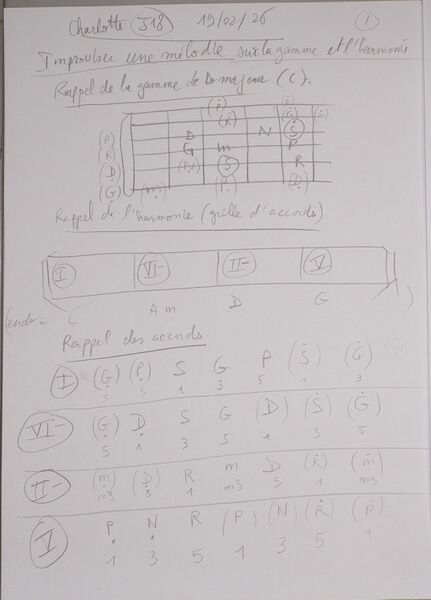 Charlotte J18 19/02/26 1
Improviser une mélodie sur la gamme et l'harmonie
Rappel de la gamme de Do majeur (C).
(P) (R) (D) (G)
(Ṙ) (G) Ṡ
D N
G m P
(N) S R
(m) (P) (D)
Rappel de l'harmonie (grille d'accords)
I VI- II- V
C Am D G
Rappel des accords
I (G) (P) S G P (Ṡ) (Ġ)
3 5 1 3 5 1 3
VI- (G) D S G (D) (Ṡ) (Ġ)
5 1 3 5 1 3 5
II- (m) (D) R m D (Ṙ) (ṁ)
m3 3 1 m3 5 1 m3
V P N R (P) (N) (Ṙ) (Ṗ)
1 3 5 1 3 5 1